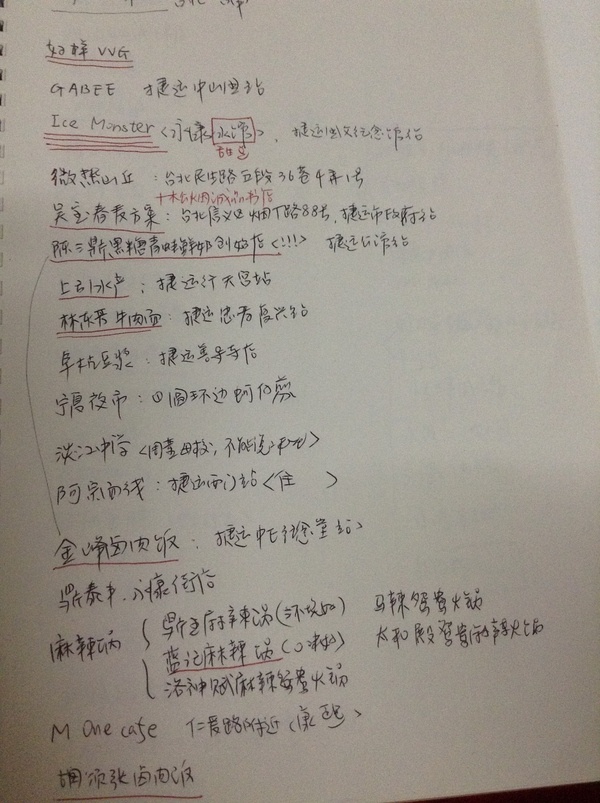 好样 VVG
GABEE 捷运中山国站
Ice Monster <永康冰馆>, 捷运国父纪念馆站
微热山丘：台北民生路五段36巷4弄1号
吴宝春麦方案：台北信义区烟厂路88号, 捷运市政府站
陈三鼎黑糖青蛙鲜奶创始店<!!!> 捷运公馆站
上引水产：捷运行天宫站
林东芳牛肉面：捷运忠孝复兴站
阜杭豆浆：捷运善导寺站
宁夏夜市：圆环边蚵仔煎
淡江中学<周董母校, 不能说的>
阿宗面线：捷运西门站<住 >
金峰卤肉饭：捷运中正纪念堂站
鼎泰丰. 永康街店
麻辣锅
鼎王麻辣锅(环境好) 马辣鸳鸯火锅
蓝记麻辣锅(口味好) 太和殿鸳鸯麻辣火锅
洛神赋麻辣鸳鸯火锅
M One cafe 仁爱路附近<康熙>
胡须张卤肉饭